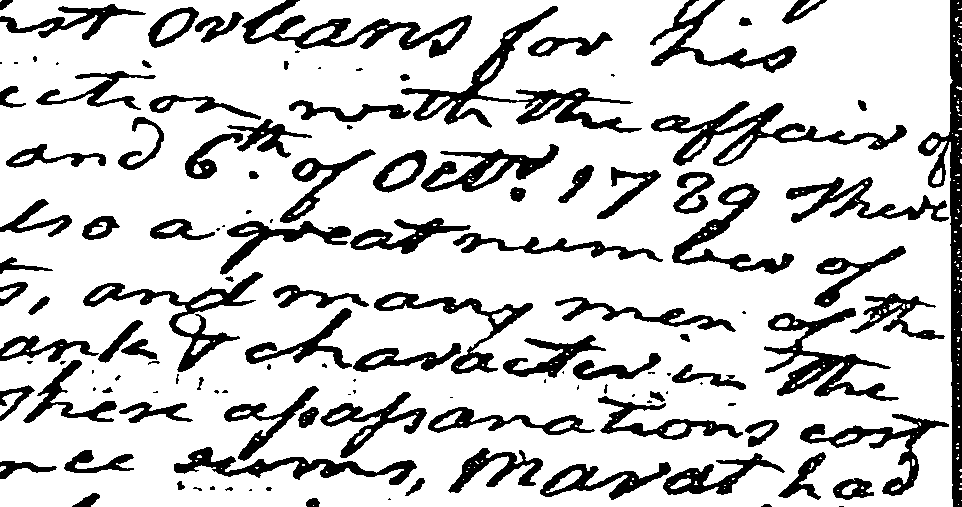 nst Orleans for his
ection with the affair of
and 6th. of Octr. 1789 There
lso a great number of
s, and many men of the
ank & character in the
These assassanations cost
nce sums, Marat had